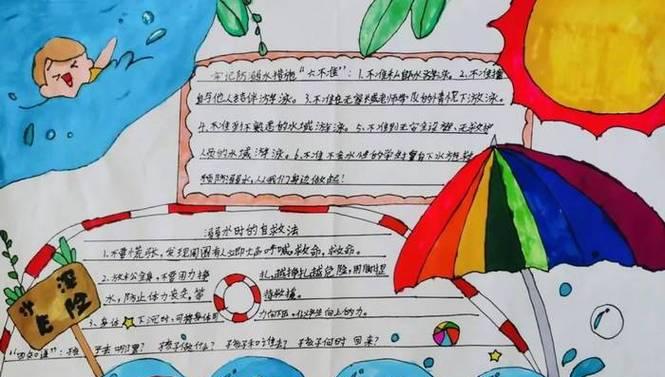 牢记防溺水措施“六不准”：1.不准私自下水游泳。2.不准擅
自与他人结伴游泳。3.不准在无家长或老师带 的情况下游泳。
4.不准到不熟悉的水域游泳。5.不准到无安全设施、无救护
人员的水域游泳。6.不准不会水性的学生擅自下水施救
预防溺水，从我们身边做起！
溺水时的自救法
1.不要慌张，发现周围有人时 大声呼喊救命，救命。
2.放松全身，不要用力挣扎，越挣扎越危险，用脚
水，防止体力丧失，等待救援。
3.身体下沉时，可将 力向下压，
深
危险
去哪里？ 孩子做什么？ 孩子和谁去？ 孩子何时回来？